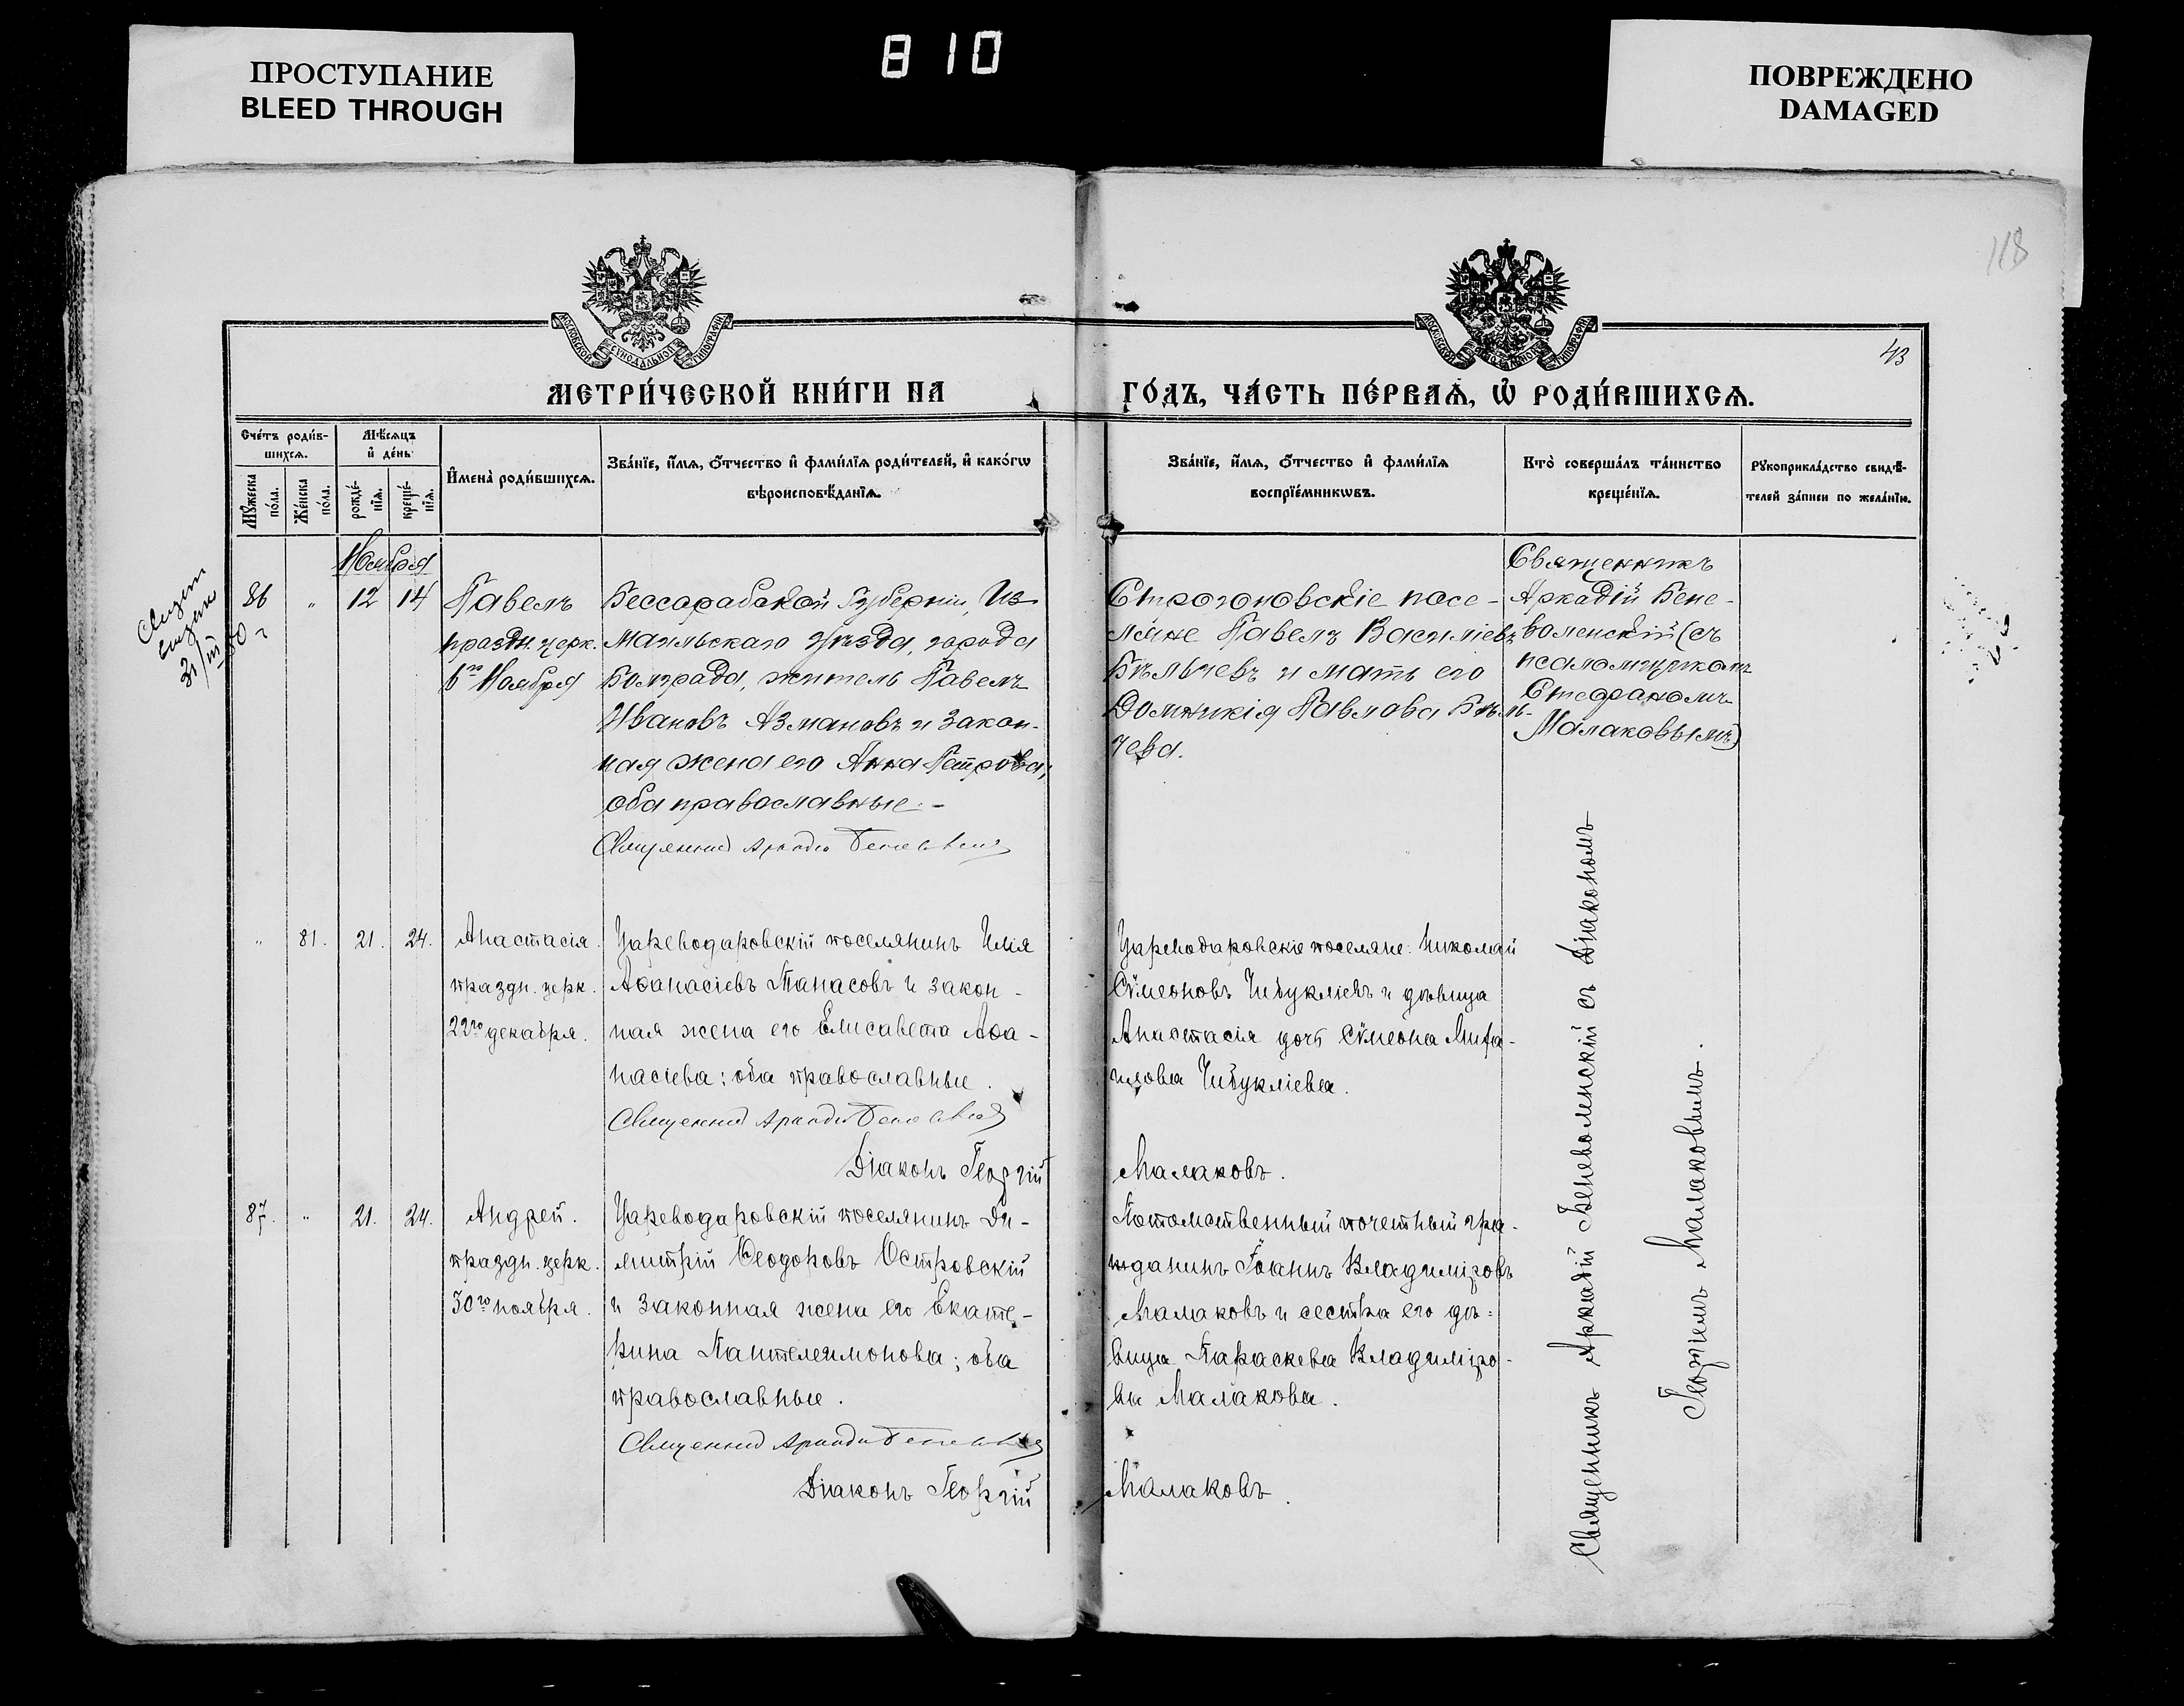 ПРОСТУПАНИЕ
BLEED THROUGH
810
ПОВРЕЖДЕНО
DAMAGED
118
43
МОСКОВСКОЙ СѴНОДАЛЬНОЙ ТИПОГРАФІИ
МОСКОВСКОЙ СѴНОДАЛЬНОЙ ТИПОГРАФІИ
МЕТРИ́ЧЕСКОЙ КНИ́ГИ НА
ГО́ДЪ, ЧА́СТЬ ПЕ́РВАѦ, Ѡ҆ РОДИ́ВШИХСѦ.
Сче́тъ роди́в-
шихсѧ.
Мꙋ́жеска по́ла.
Же́нска по́ла.
Мѣ́сѧцъ
и҆ де́нь
рожде́-
нїѧ.
креще́-
нїѧ.
И҆мена̀ роди́вшихсѧ.
Зва́нїе, и҆́мѧ, ѻ҆́тчество и҆ фами́лїѧ роди́телей, и҆ како́гѡ
вѣроисповѣ́данїѧ.
Зва́нїе, и҆́мѧ, ѻ҆́тчество и҆ фами́лїѧ
воспрїе́мникѡвъ.
Кто̀ соверша́лъ та́инство
креще́нїѧ.
Рꙋкоприкла́дство свидѣ́-
телей за́писи по жела́нїю.
Ноября
86 " 12 14
Павелъ
праздн. церк.
6го Ноября
Бессарабской Губерніи, Из-
маильскаго уѣзда, города
Болграда, житель Павелъ
Ивановъ Азмановъ и закон-
ная жена его Анна Петрова,
оба православные.-
Священник Аркадій
Строгоновскіе посе-
ляне Павелъ Василіевъ
Бѣльчевъ и мать его
Домникія Павлова Бѣль-
чева.
Священникъ
Аркадій Бене-
воленскій (съ
псаломщикомъ
Стефаномъ
Малаковымъ)
" 81. 21. 24.
Анастасія.
праздн. церк.
22го декабря.
Цареводаровскій поселянинъ Илія
Аѳанасіевъ Танасовъ и закон-
ная жена его Елисавета Аѳа-
насіева; оба православные.
Священник Аркадій
Діаконъ Георгій
Цареводаровскіе поселяне: Николай
Сѵмеоновъ Чибукліевъ и дѣвица
Анастасія дочь Сѵмеона Миха-
илова Чибукліева.
Малаковъ.
87. " 21. 24.
Андрей.
праздн. церк.
30го ноября.
Цареводаровскій поселянинъ Ди-
митрій Ѳеодоровъ Островскій
и законная жена его Екате-
рина Пантелеимонова; оба
православные.
Священник Аркадій
Діаконъ Георгій
Потомственный почетный гра-
жданинъ Іоаннъ Владиміровъ
Малаковъ и сестра его дѣ-
вица Параскева Владиміро-
ва Малакова.
Малаковъ.
Священникъ Аркадій Беневоленскій съ Діакономъ
Георгіемъ Малаковымъ.